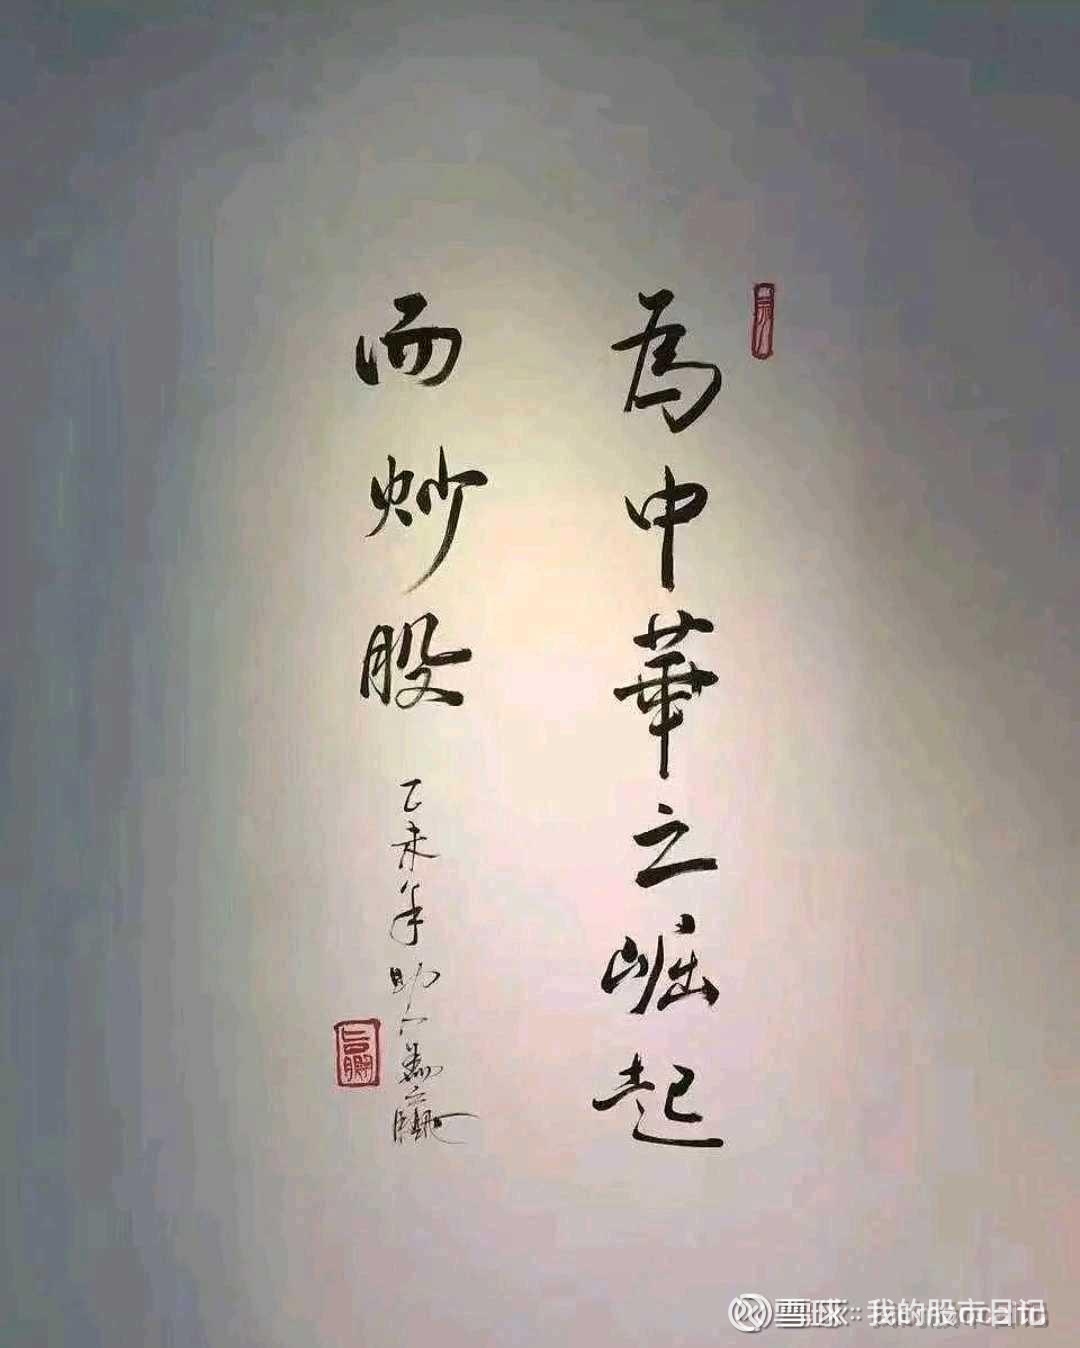 為中華之崛起
而炒股
乙未年
雪球：我的股市日记